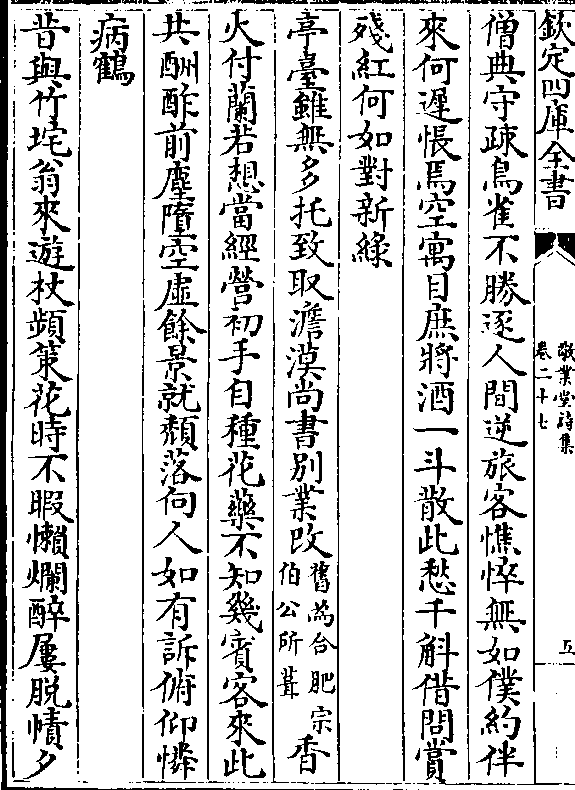 欽定四庫全書
敬業堂詩集
卷二十七
五
僧典守疎鳥雀不勝逐人間逆旅客憔悴無如僕約伴
來何遲悵焉空寓目庶將酒一斗散此愁千斛借問賞
殘紅何如對新綠
亭臺雖無多托致取澹漠尚書別業改舊為合肥宗伯公所葺香
火付蘭若想當經營初手自種花藥不知幾賓客來此
共酬酢前塵墮空虛餘景就頹落向人如有訴俯仰憐
病鶴
昔與竹垞翁來遊杖頻策花時不暇懶爛醉屢脫幘夕